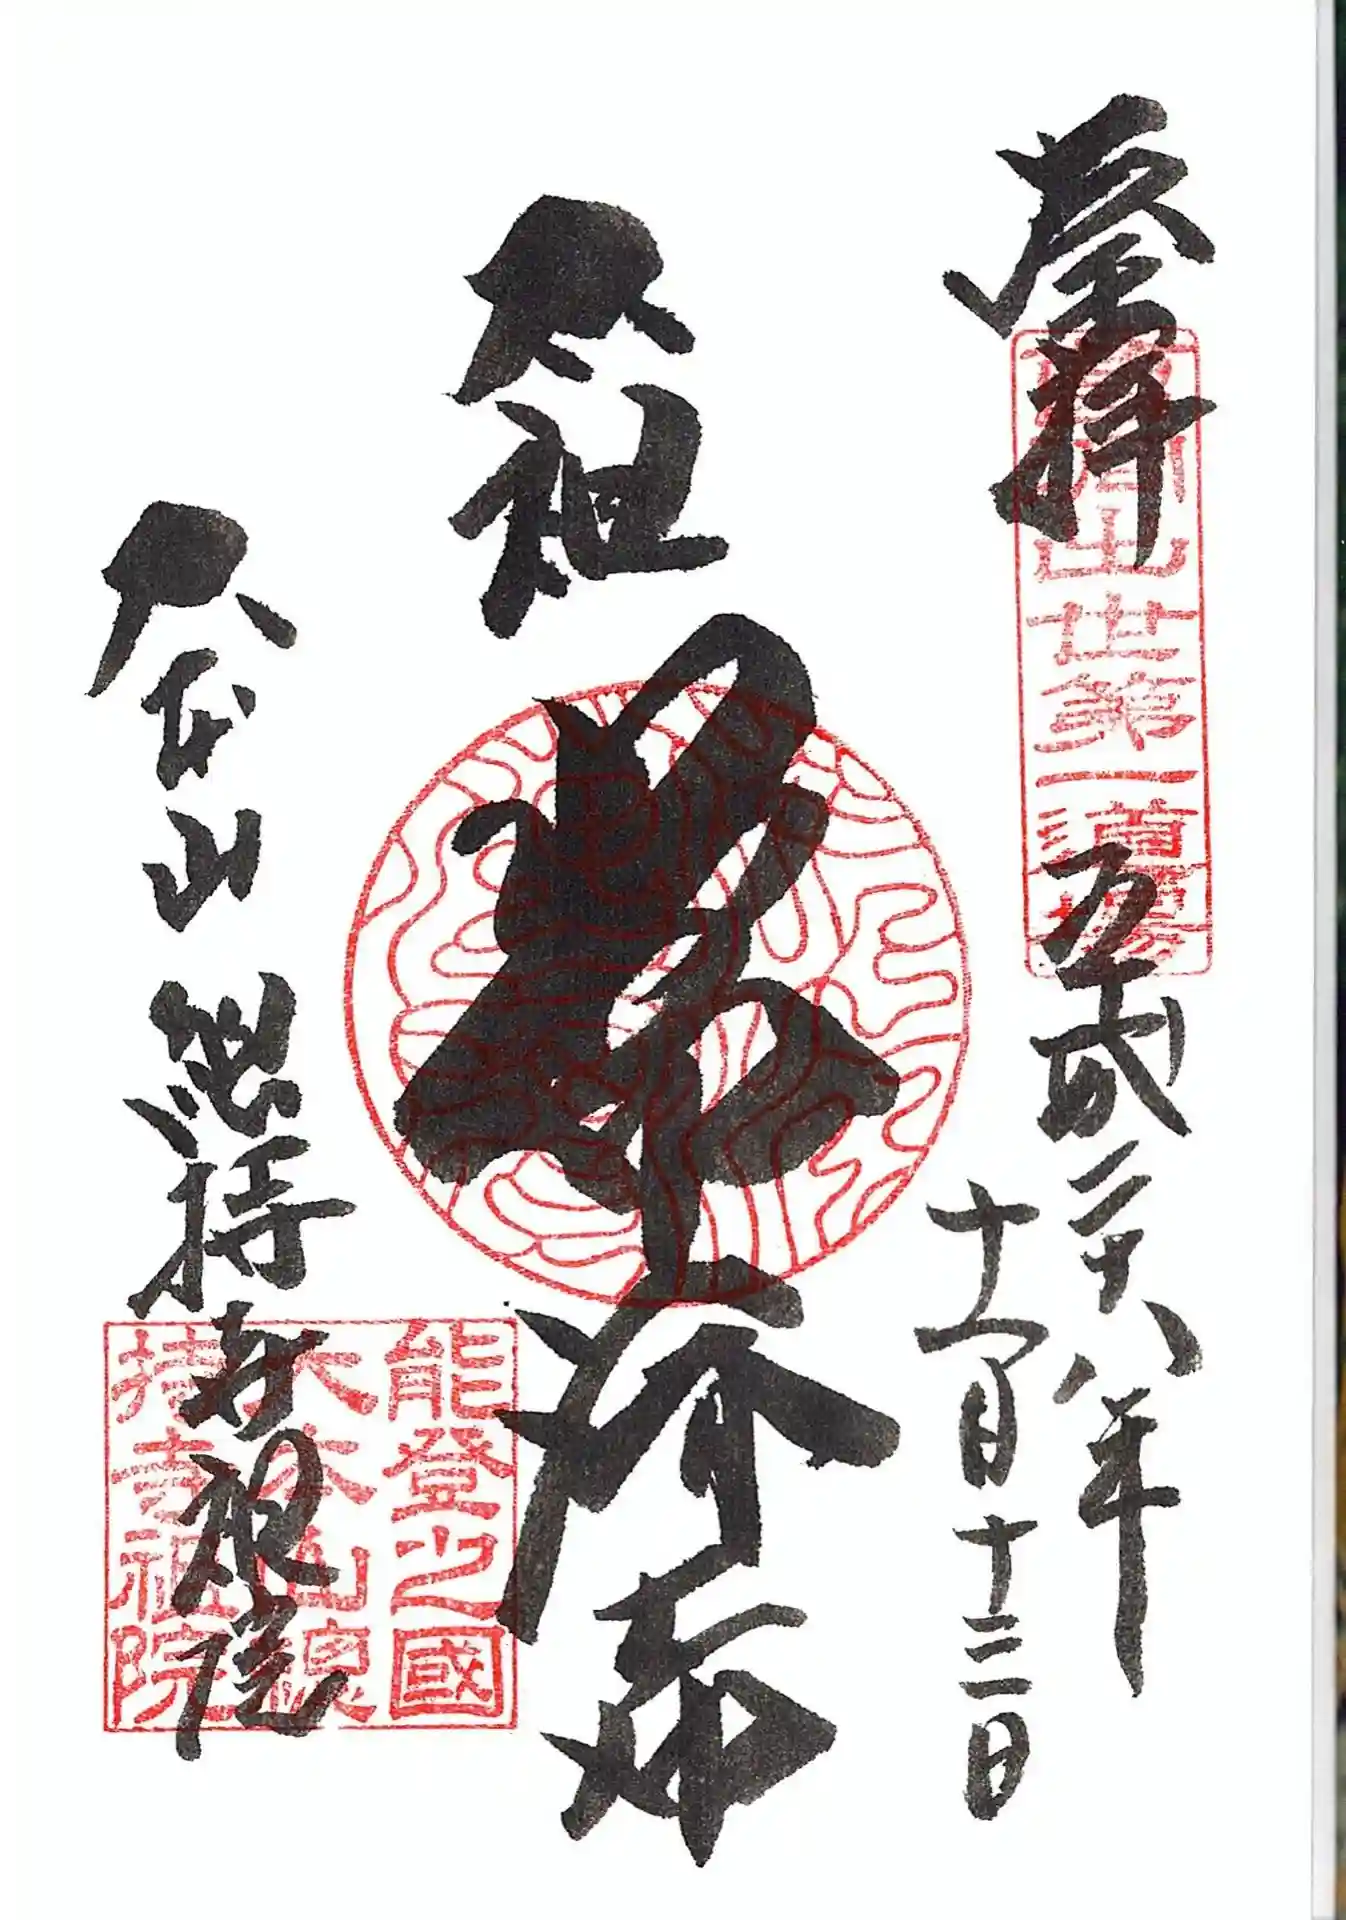 奉拝
曹洞出世第一道場
平成二十八年
十一月十三日
太祖
大本山 總持寺祖院
能登之國
大本山總
持寺祖院